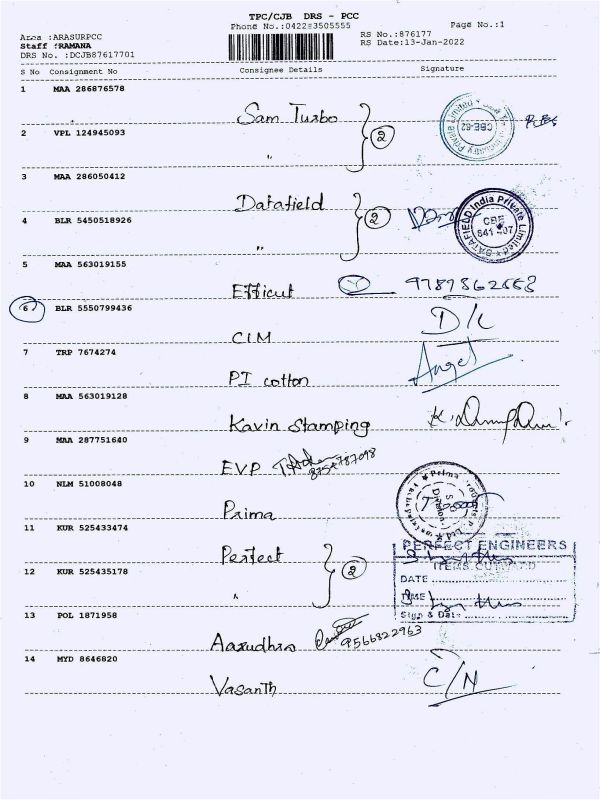 TPC/CJB DRS - PCC
Phone No.:0422-3505555 Page No.:1
Area :ARASURPCC RS No.:876177
Staff :RAMANA RS Date:13-Jan-2022
DRS No. :DCJB87617701
S No Consignment No Consignee Details Signature
1 MAA 286876578
Sam Turbo
2 VPL 124945093 (2) CBE-62
"
3 MAA 286050412
Datafield
4 BLR 5450518926 (2) DATAFIELD India Private Limited CBE 641 407
"
5 MAA 563019155
Efficut
6 BLR 5550799436
CIM D/C
7 TRP 7674274
PI cotton Angel
8 MAA 563019128
Kavin Stamping
9 MAA 287751640
EVP
10 NLM 51008048
Prima
11 KUR 525433474
Perfect PERFECT ENGINEERS
12 KUR 525435178 (2) ITEMS OUTWARD
" DATE
TIME
Sign & Date
13 POL 1871958
Aarudhra 9566822963
14 MYD 8646820
Vasanth C/N